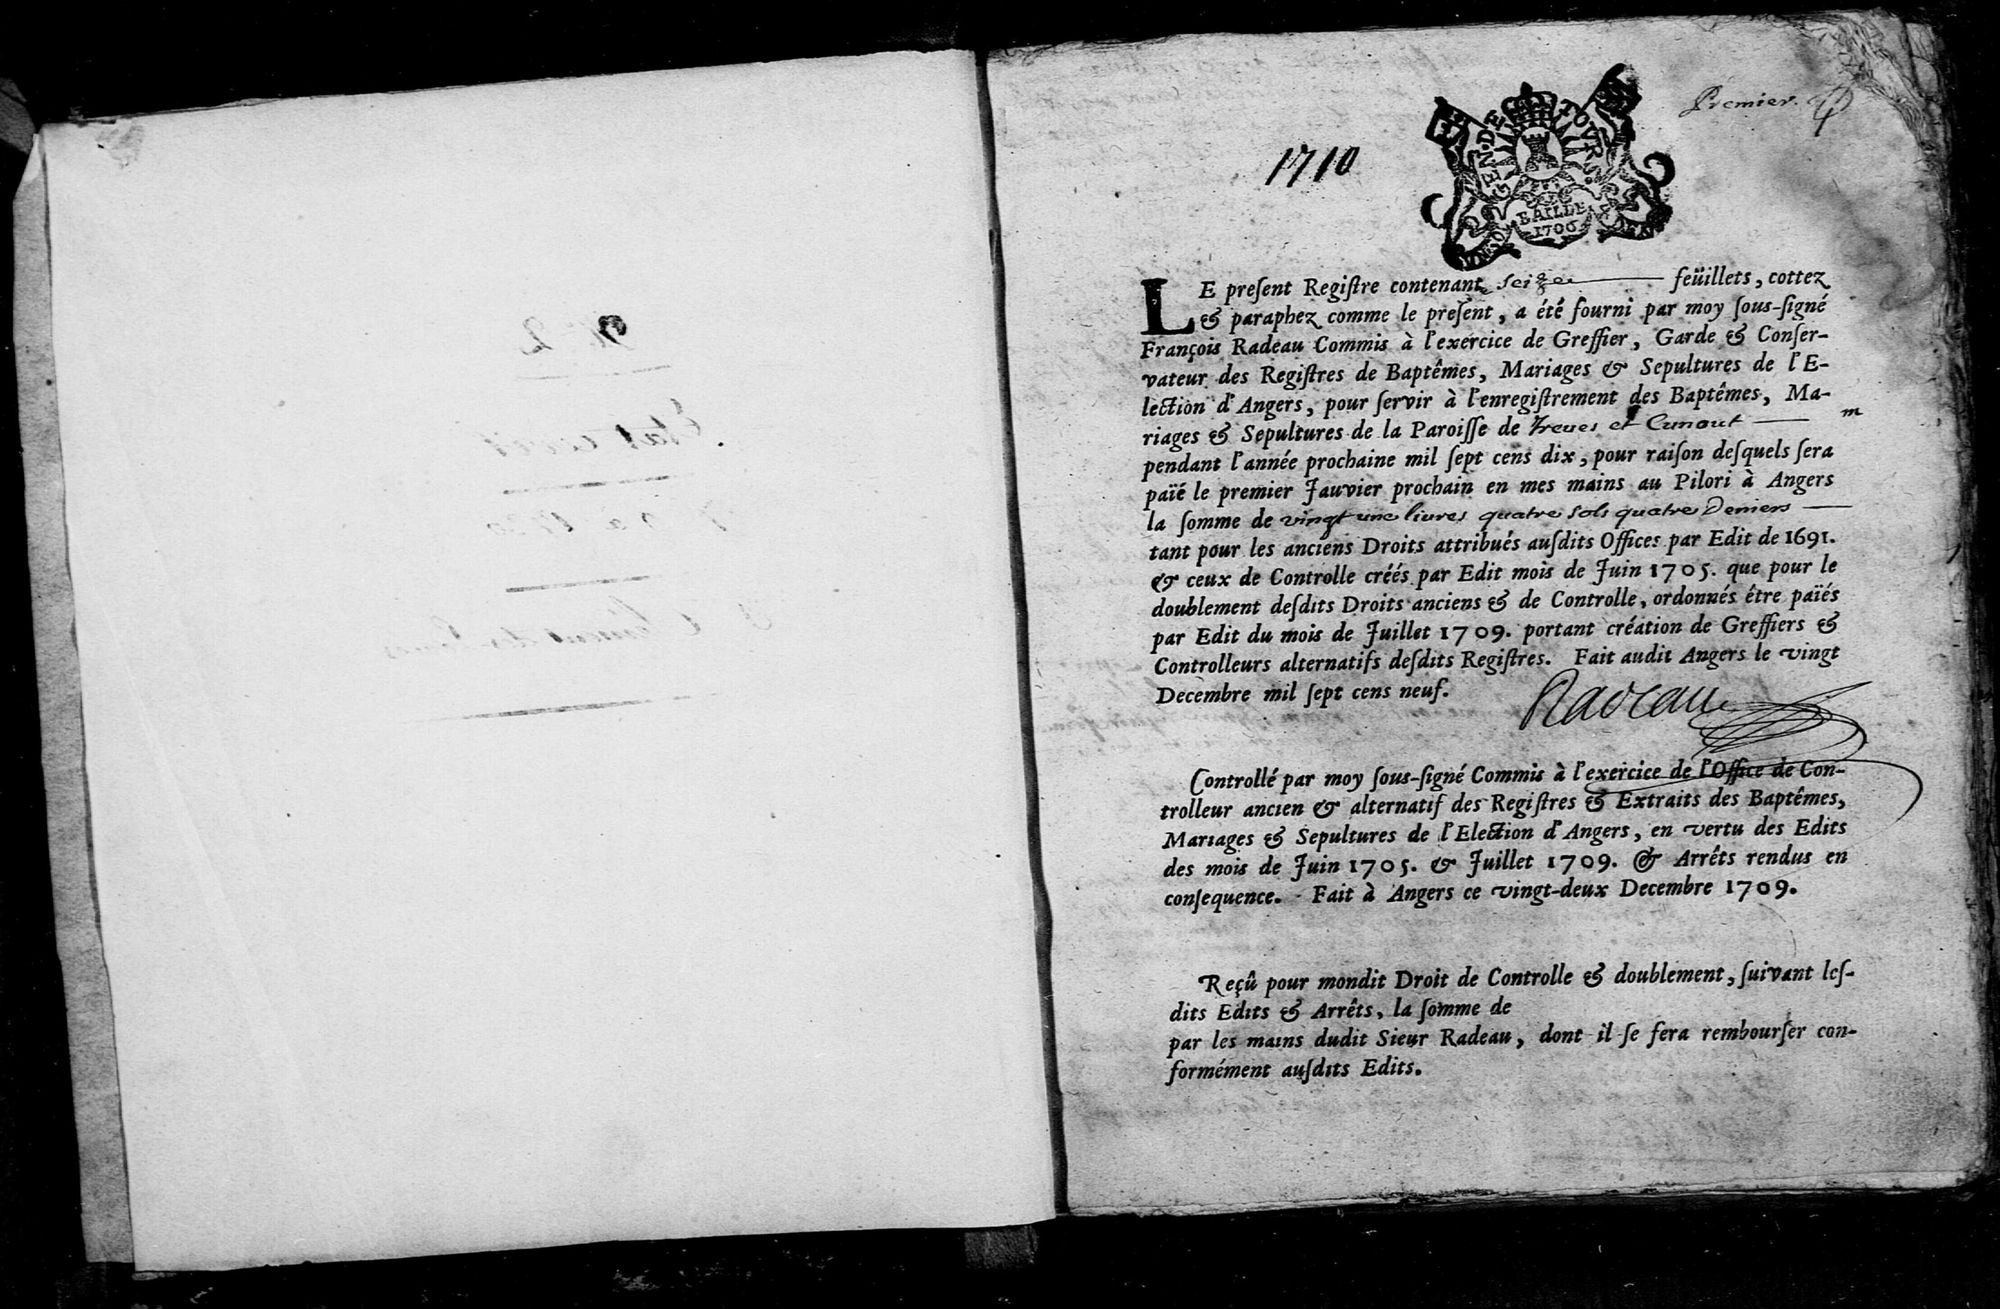 Premier.
1710
GEN. DE TOVRS
BAILLE
1706
LE preſent Regiſtre contenant seize feüillets, cottez
& paraphez comme le preſent, a été fourni par moy ſous-ſigné
François Radeau Commis à l'exercice de Greffier, Garde & Conſer-
vateur des Regiſtres de Baptêmes, Mariages & Sepultures de l'E-
lection d'Angers, pour ſervir à l'enregiſtrement des Baptêmes, Ma-
riages & Sepultures de la Paroiſſe de Treues et Cunaut
pendant l'année prochaine mil ſept cens dix, pour raiſon deſquels ſera
païé le premier Jauvier prochain en mes mains au Pilori à Angers
la ſomme de vingt une livres quatre sols quatre Deniers
tant pour les anciens Droits attribués auſdits Offices par Edit de 1691.
& ceux de Controlle créés par Edit mois de Juin 1705. que pour le
doublement deſdits Droits anciens & de Controlle, ordonnés être païés
par Edit du mois de Juillet 1709. portant création de Greffiers &
Controlleurs alternatifs deſdits Regiſtres. Fait audit Angers le vingt
Decembre mil ſept cens neuf.
Radeau
Controllé par moy ſous-ſigné Commis à l'exercice de l'Office de Con-
trolleur ancien & alternatif des Regiſtres & Extraits des Baptêmes,
Mariages & Sepultures de l'Election d'Angers, en vertu des Edits
des mois de Juin 1705. & Juillet 1709. & Arrêts rendus en
conſequence. Fait à Angers ce vingt-deux Decembre 1709.
Reçû pour mondit Droit de Controlle & doublement, ſuivant leſ-
dits Edits & Arrêts, la ſomme de
par les mains dudit Sieur Radeau, dont il ſe fera rembourſer con-
formément auſdits Edits.